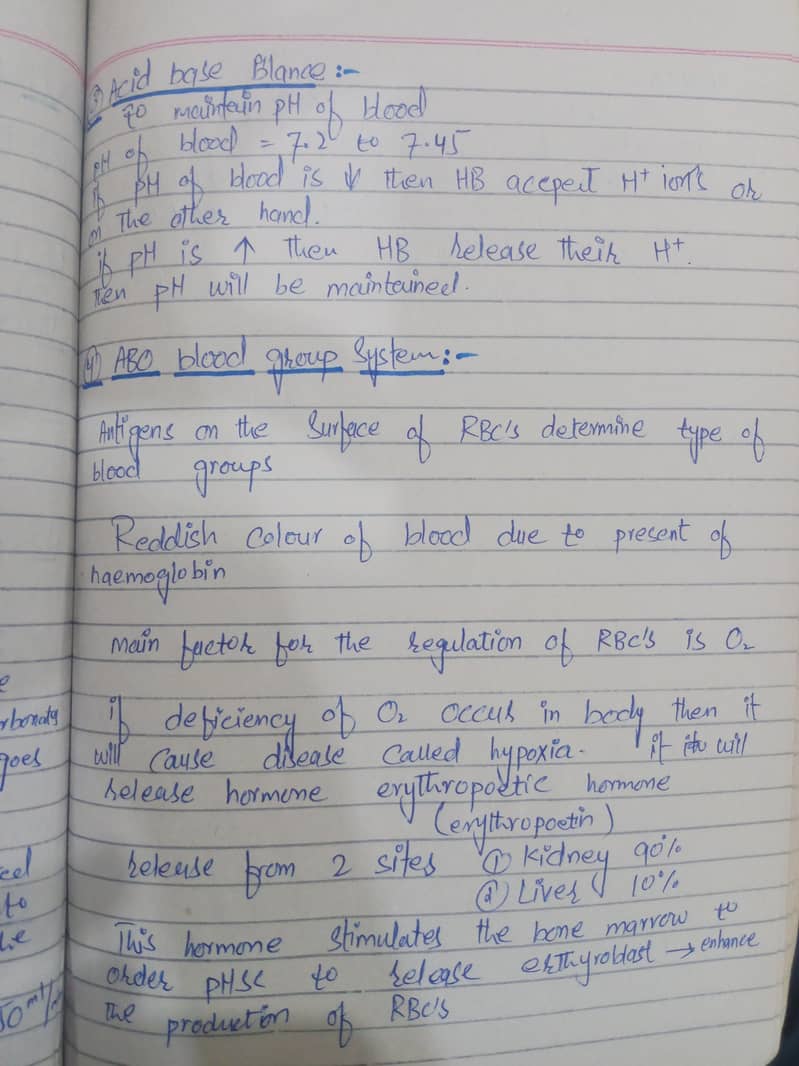 3) Acid base Blance :-
to maintain pH of blood
pH of blood = 7.2 to 7.45
if pH of blood is ↓ then HB accpect H+ ions or
on the other hand.
if pH is ↑ then HB release their H+.
then pH will be maintained.
4) ABO blood group System :-
Antigens on the Surface of RBC's determine type of
blood groups
Reddish Colour of blood due to present of
haemoglobin
main factor for the regulation of RBC's is O2
if deficiency of O2 occur in body then it
will cause disease called hypoxia. if it will
release hormone erythropoetic hormone
(erythropoetin)
release from 2 sites ① Kidney 90%
② Liver 10%
This hormone stimulates the bone marrow to
order PHSC to release erthyroblast → enhance
the production of RBC's
rbonaty
goes
eel
to